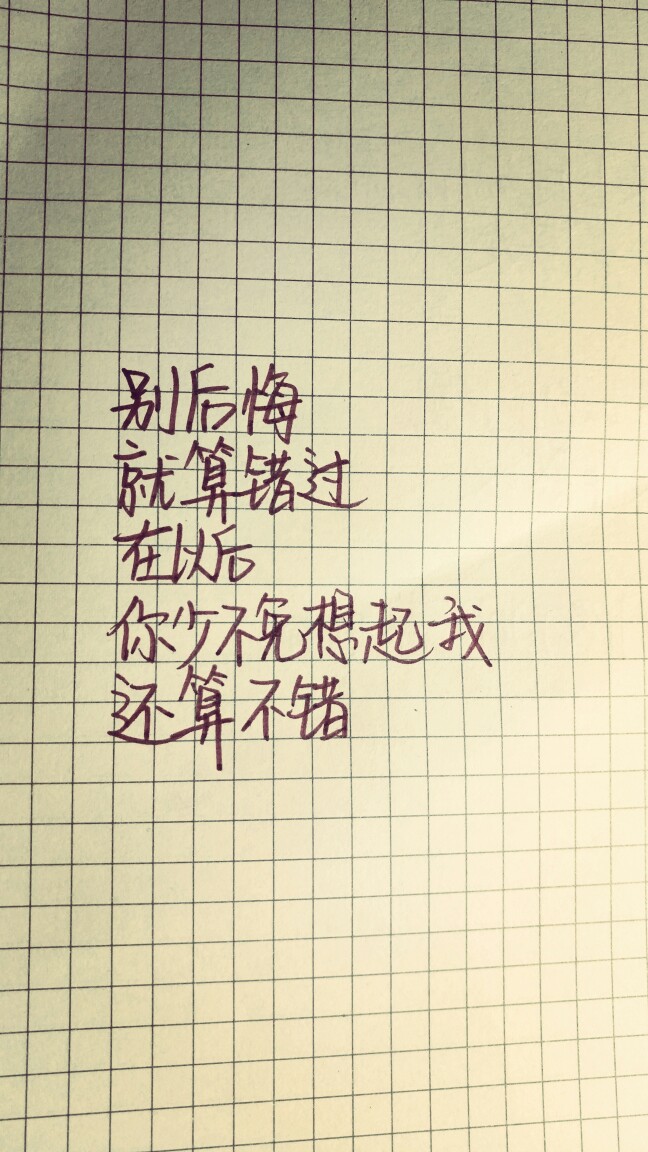 别后悔
就算错过
在以后
你少不免想起我
还算不错